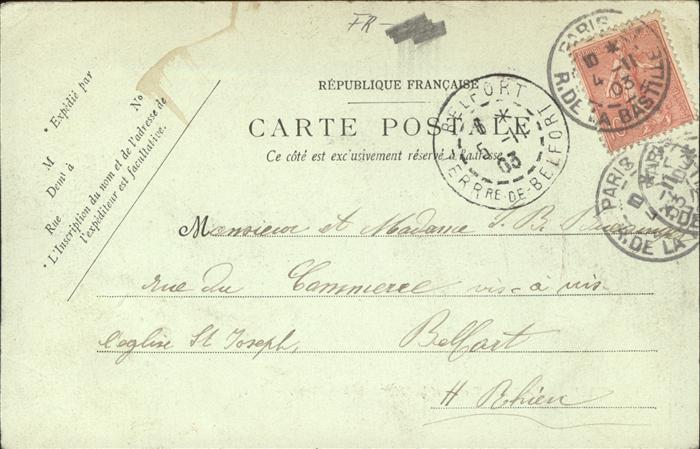 FR-
RÉPUBLIQUE FRANÇAISE
CARTE POSTALE
Ce côté est exclusivement réservé à l'adresse
• Expédié par
M
Demt à
Rue
No
• L'Inscription du nom et de l'adresse de
l'expéditeur est facultative.
BELFORT
5 -11
03
TERRRE-DE-BELFORT
PARIS
4 -11
03
R. DE LA BASTILLE
PARIS
R. DE LA
Monsieur et Madame S. B.
rue du Commerce vis-à vis
l'eglise St Joseph,
Belfort
H Rhien